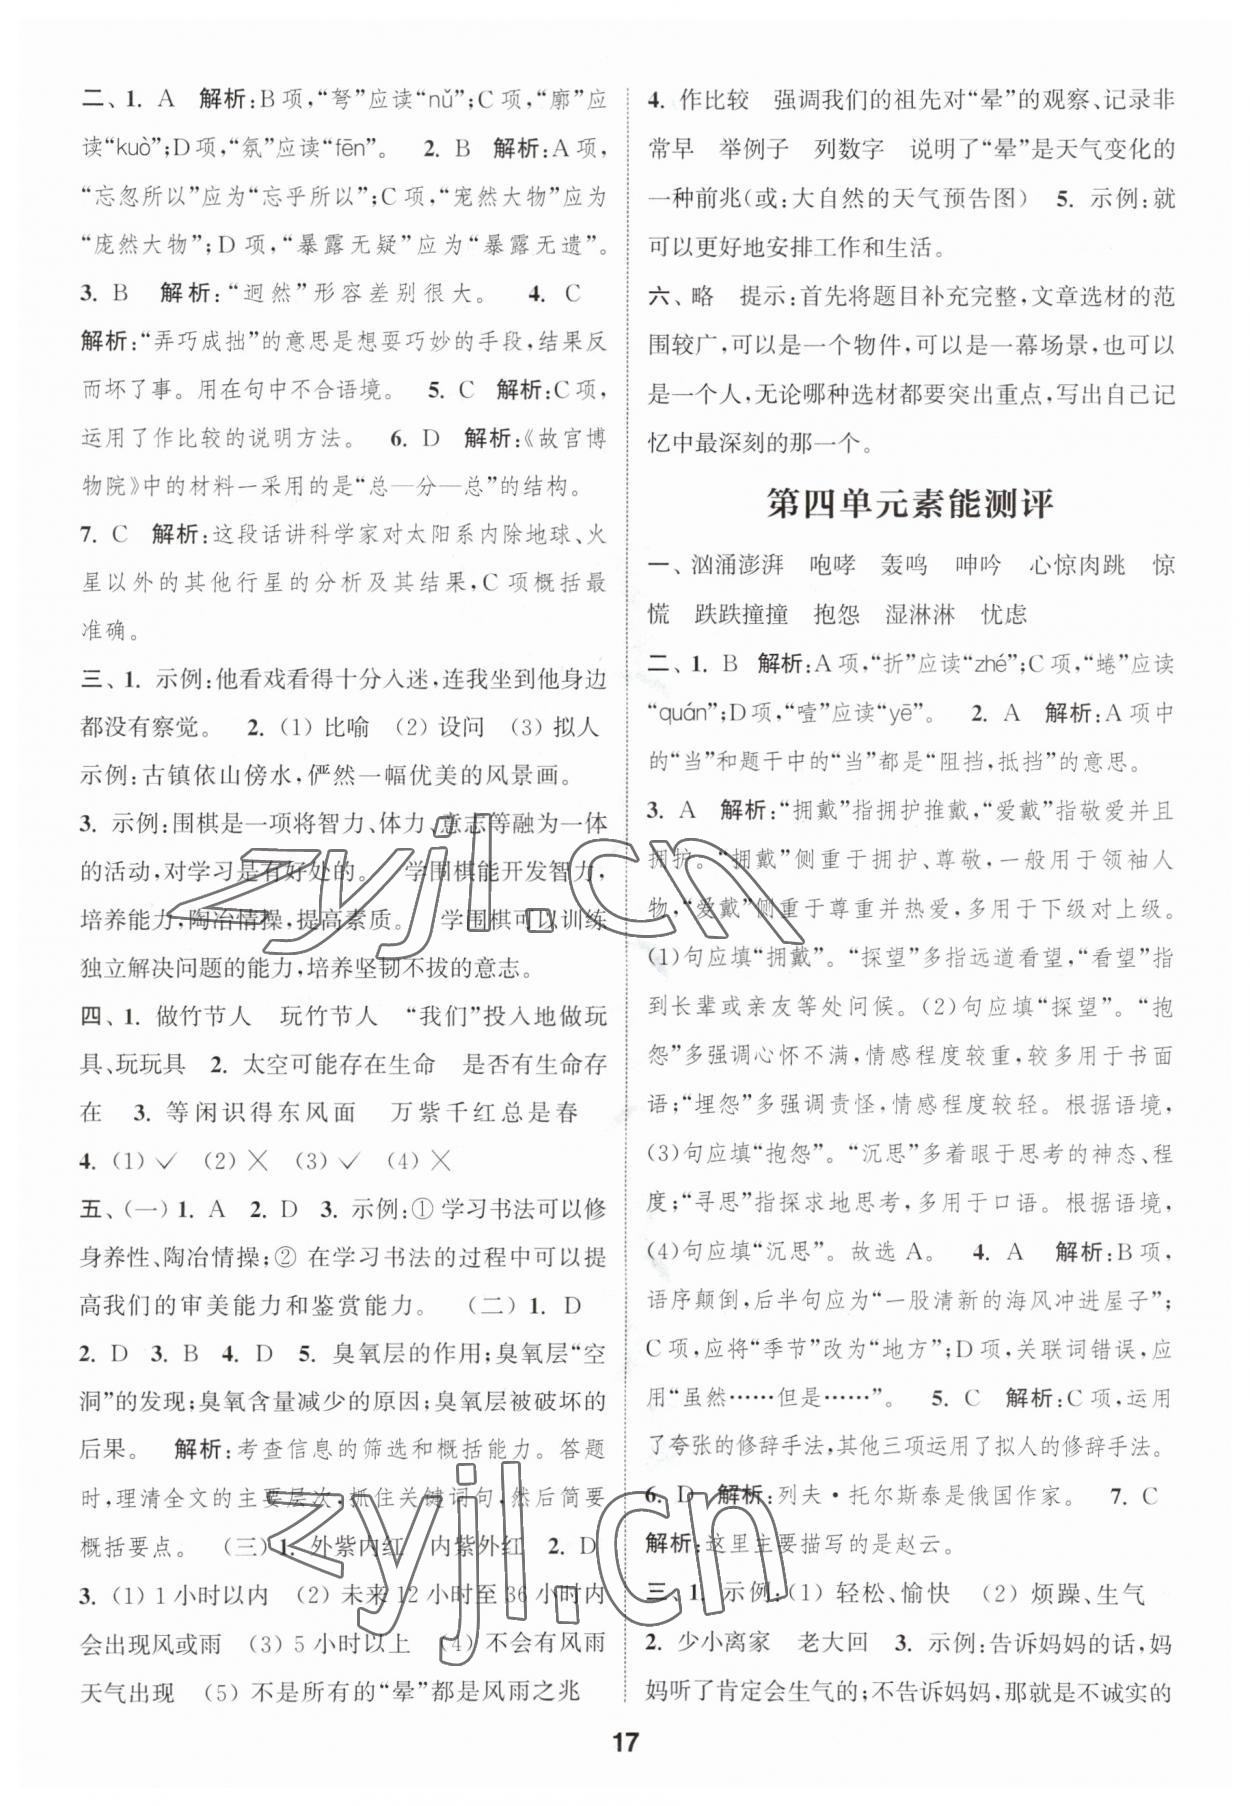 二、1. A 解析:B项,“弩”应读“nǔ”;C项,“廓”应
读“kuò”;D项,“氛”应读“fēn”。 2. B 解析:A项,
“忘忽所以”应为“忘乎所以”;C项,“宠然大物”应为
“庞然大物”;D项,“暴露无疑”应为“暴露无遗”。
3. B 解析:“迥然”形容差别很大。 4. C
解析:“弄巧成拙”的意思是想耍巧妙的手段,结果反
而坏了事。用在句中不合语境。 5. C 解析:C项,
运用了作比较的说明方法。 6. D 解析:《故宫博
物院》中的材料一采用的是“总—分—总”的结构。
7. C 解析:这段话讲科学家对太阳系内除地球、火
星以外的其他行星的分析及其结果,C项概括最
准确。
三、1. 示例:他看戏看得十分入迷,连我坐到他身边
都没有察觉。 2. (1) 比喻 (2) 设问 (3) 拟人
示例:古镇依山傍水,俨然一幅优美的风景画。
3. 示例:围棋是一项将智力、体力、意志等融为一体
的活动,对学习是有好处的。 学围棋能开发智力,
培养能力,陶冶情操,提高素质。 学围棋可以训练
独立解决问题的能力,培养坚韧不拔的意志。
四、1. 做竹节人 玩竹节人 “我们”投入地做玩
具、玩玩具 2. 太空可能存在生命 是否有生命存
在 3. 等闲识得东风面 万紫千红总是春
4. (1) ✓ (2) ✕ (3) ✓ (4) ✕
五、(一) 1. A 2. D 3. 示例:① 学习书法可以修
身养性、陶冶情操;② 在学习书法的过程中可以提
高我们的审美能力和鉴赏能力。 (二) 1. D
2. D 3. B 4. D 5. 臭氧层的作用;臭氧层“空
洞”的发现;臭氧含量减少的原因;臭氧层被破坏的
后果。 解析:考查信息的筛选和概括能力。答题
时,理清全文的主要层次,抓住关键词句,然后简要
概括要点。 (三) 1. 外紫内红 内紫外红 2. D
3. (1) 1小时以内 (2) 未来12小时至36小时内
会出现风或雨 (3) 5小时以上 (4) 不会有风雨
天气出现 (5) 不是所有的“晕”都是风雨之兆
4. 作比较 强调我们的祖先对“晕”的观察、记录非
常早 举例子 列数字 说明了“晕”是天气变化的
一种前兆(或:大自然的天气预告图) 5. 示例:就
可以更好地安排工作和生活。
六、略 提示:首先将题目补充完整,文章选材的范
围较广,可以是一个物件,可以是一幕场景,也可以
是一个人,无论哪种选材都要突出重点,写出自己记
忆中最深刻的那一个。
第四单元素能测评
一、汹涌澎湃 咆哮 轰鸣 呻吟 心惊肉跳 惊
慌 跌跌撞撞 抱怨 湿淋淋 忧虑
二、1. B 解析:A项,“折”应读“zhé”;C项,“蜷”应读
“quán”;D项,“噎”应读“yē”。 2. A 解析:A项中
的“当”和题干中的“当”都是“阻挡,抵挡”的意思。
3. A 解析:“拥戴”指拥护推戴,“爱戴”指敬爱并且
拥护。“拥戴”侧重于拥护、尊敬,一般用于领袖人
物,“爱戴”侧重于尊重并热爱,多用于下级对上级。
(1)句应填“拥戴”。“探望”多指远道看望,“看望”指
到长辈或亲友等处问候。(2)句应填“探望”。“抱
怨”多强调心怀不满,情感程度较重,较多用于书面
语;“埋怨”多强调责怪,情感程度较轻。根据语境,
(3)句应填“抱怨”。“沉思”多着眼于思考的神态、程
度;“寻思”指探求地思考,多用于口语。根据语境,
(4)句应填“沉思”。故选A。 4. A 解析:B项,
语序颠倒,后半句应为“一股清新的海风冲进屋子”;
C项,应将“季节”改为“地方”;D项,关联词错误,应
用“虽然……但是……”。 5. C 解析:C项,运用
了夸张的修辞手法,其他三项运用了拟人的修辞手法。
6. D 解析:列夫·托尔斯泰是俄国作家。 7. C
解析:这里主要描写的是赵云。
三、1. 示例:(1) 轻松、愉快 (2) 烦躁、生气
2. 少小离家 老大回 3. 示例:告诉妈妈的话,妈
妈听了肯定会生气的;不告诉妈妈,那就是不诚实的
17
zyjl.cn
zyjl.cn